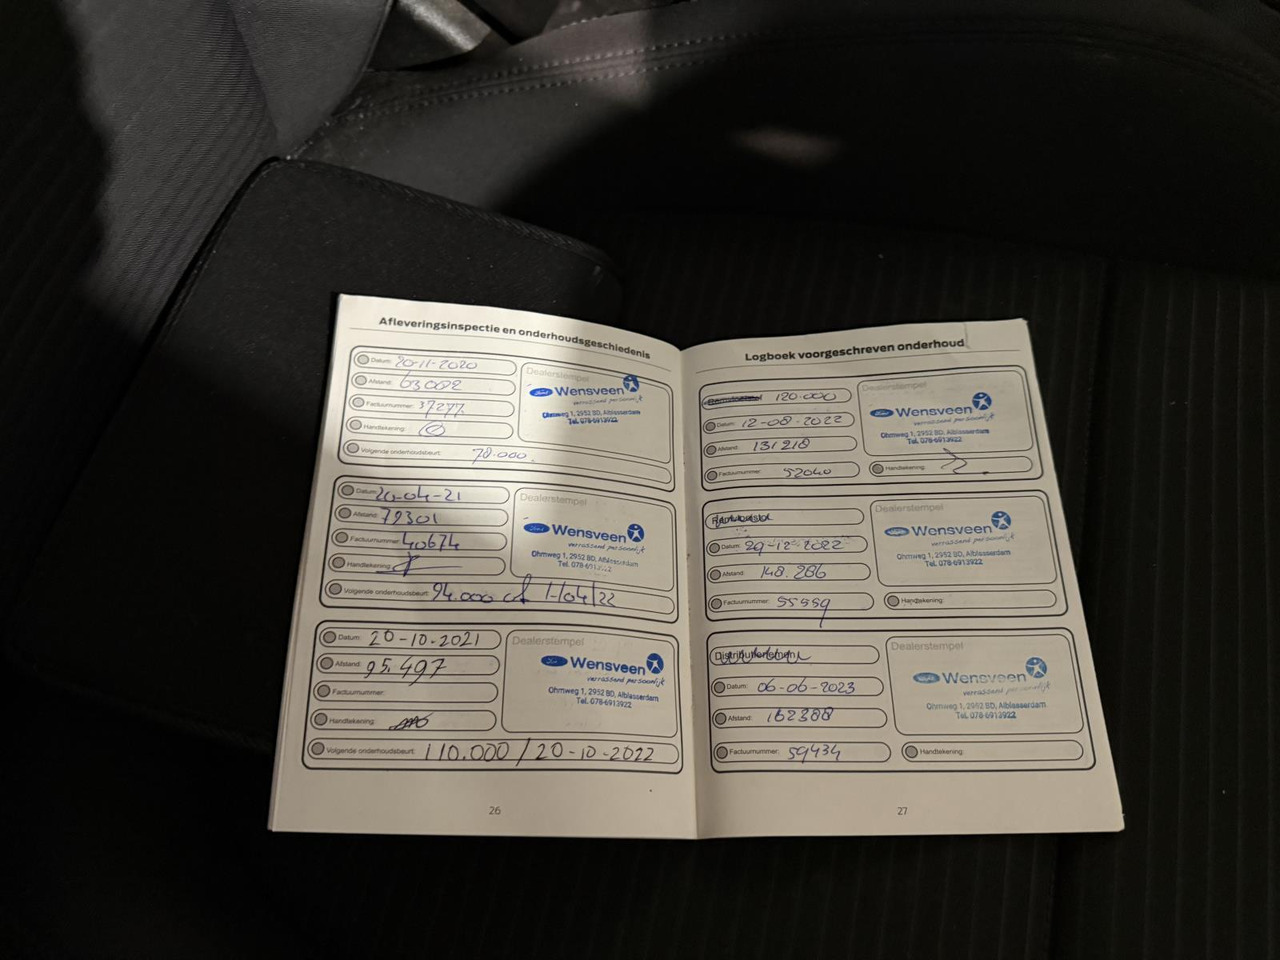 Afleveringsinspectie en onderhoudsgeschiedenis
Datum: 20-11-2020
Afstand: 63082
Factuurnummer: 37277
Handtekening:
Volgende onderhoudsbeurt: 78.000.
Dealerstempel
Ford Wensveen
verrassend persoonlijk
Ohmweg 1, 2952 BD, Alblasserdam
Tel. 078-6913922
Datum: 20-04-21
Afstand: 79301
Factuurnummer: 40674
Handtekening:
Volgende onderhoudsbeurt: 94.000 of 1-04/22
Dealerstempel
Ford Wensveen
verrassend persoonlijk
Ohmweg 1, 2952 BD, Alblasserdam
Tel. 078-6913922
Datum: 20-10-2021
Afstand: 95.497
Factuurnummer:
Handtekening:
Volgende onderhoudsbeurt: 110.000 / 20-10-2022
Dealerstempel
Ford Wensveen
verrassend persoonlijk
Ohmweg 1, 2952 BD, Alblasserdam
Tel. 078-6913922
26
Logboek voorgeschreven onderhoud
120.000
Datum: 12-08-2022
Afstand: 131218
Factuurnummer: 52040
Dealerstempel
Ford Wensveen
verrassend persoonlijk
Ohmweg 1, 2952 BD, Alblasserdam
Tel. 078-6913922
Handtekening:
Datum: 29-12-2022
Afstand: 148.286
Factuurnummer: 55559
Dealerstempel
Wensveen
verrassend persoonlijk
Ohmweg 1, 2952 BD, Alblasserdam
Tel. 078-6913922
Handtekening:
Distributieriem
Datum: 06-06-2023
Afstand: 162388
Factuurnummer: 59434
Dealerstempel
Wensveen
verrassend persoonlijk
Ohmweg 1, 2952 BD, Alblasserdam
Tel. 078-6913922
Handtekening:
27